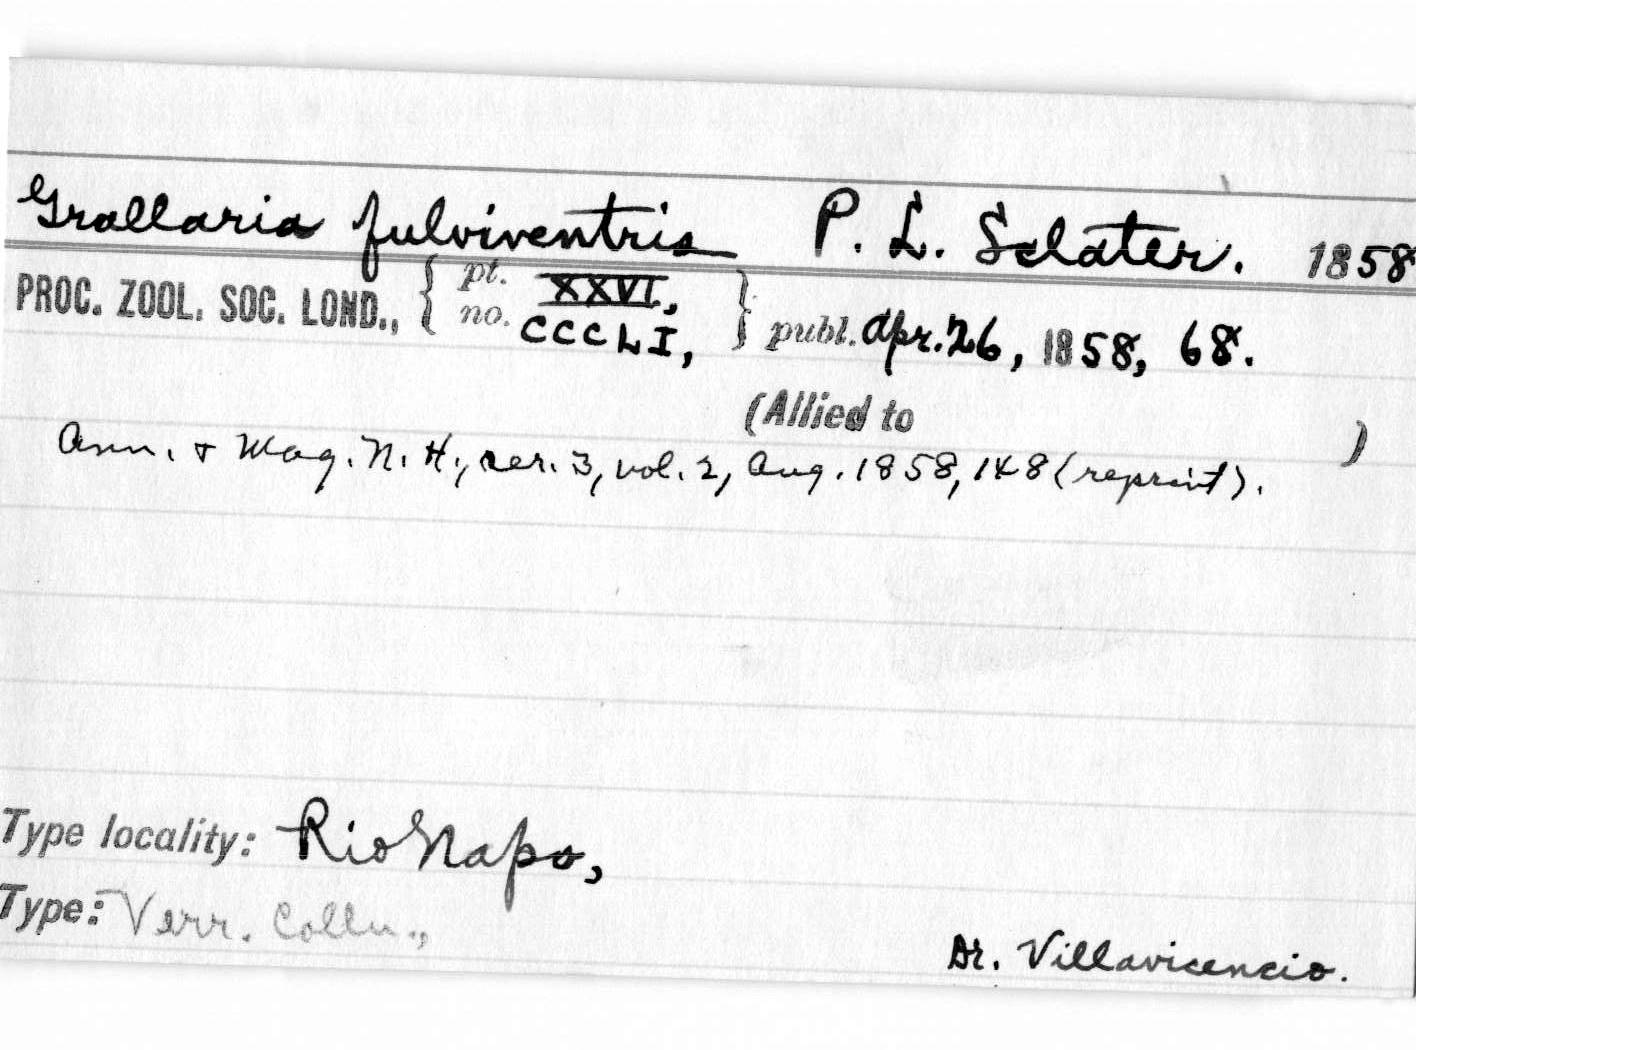 Grallaria fulviventris P. L. Sclater. 1858
PROC. ZOOL. SOC. LOND., { pt. XXVI, no. CCCLI, } publ. Apr. 26, 1858, 68.
(Allied to )
Ann. & Mag. N. H., ser. 3, vol. 2, Aug. 1858, 148 (reprint).
Type locality: Rio Napo,
Type: Verr. Colln.,
Dr. Villavicencio.